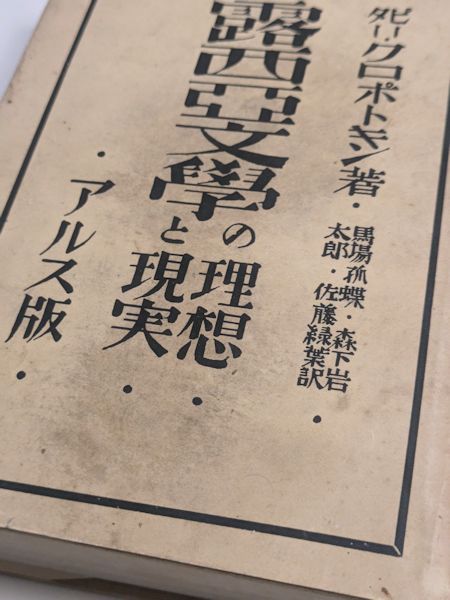 ピー・クロポトキン著・
馬場孤蝶・森下岩
太郎・佐藤緑葉訳・
露西亞文學
の理想・
と現実・
・アルス版・